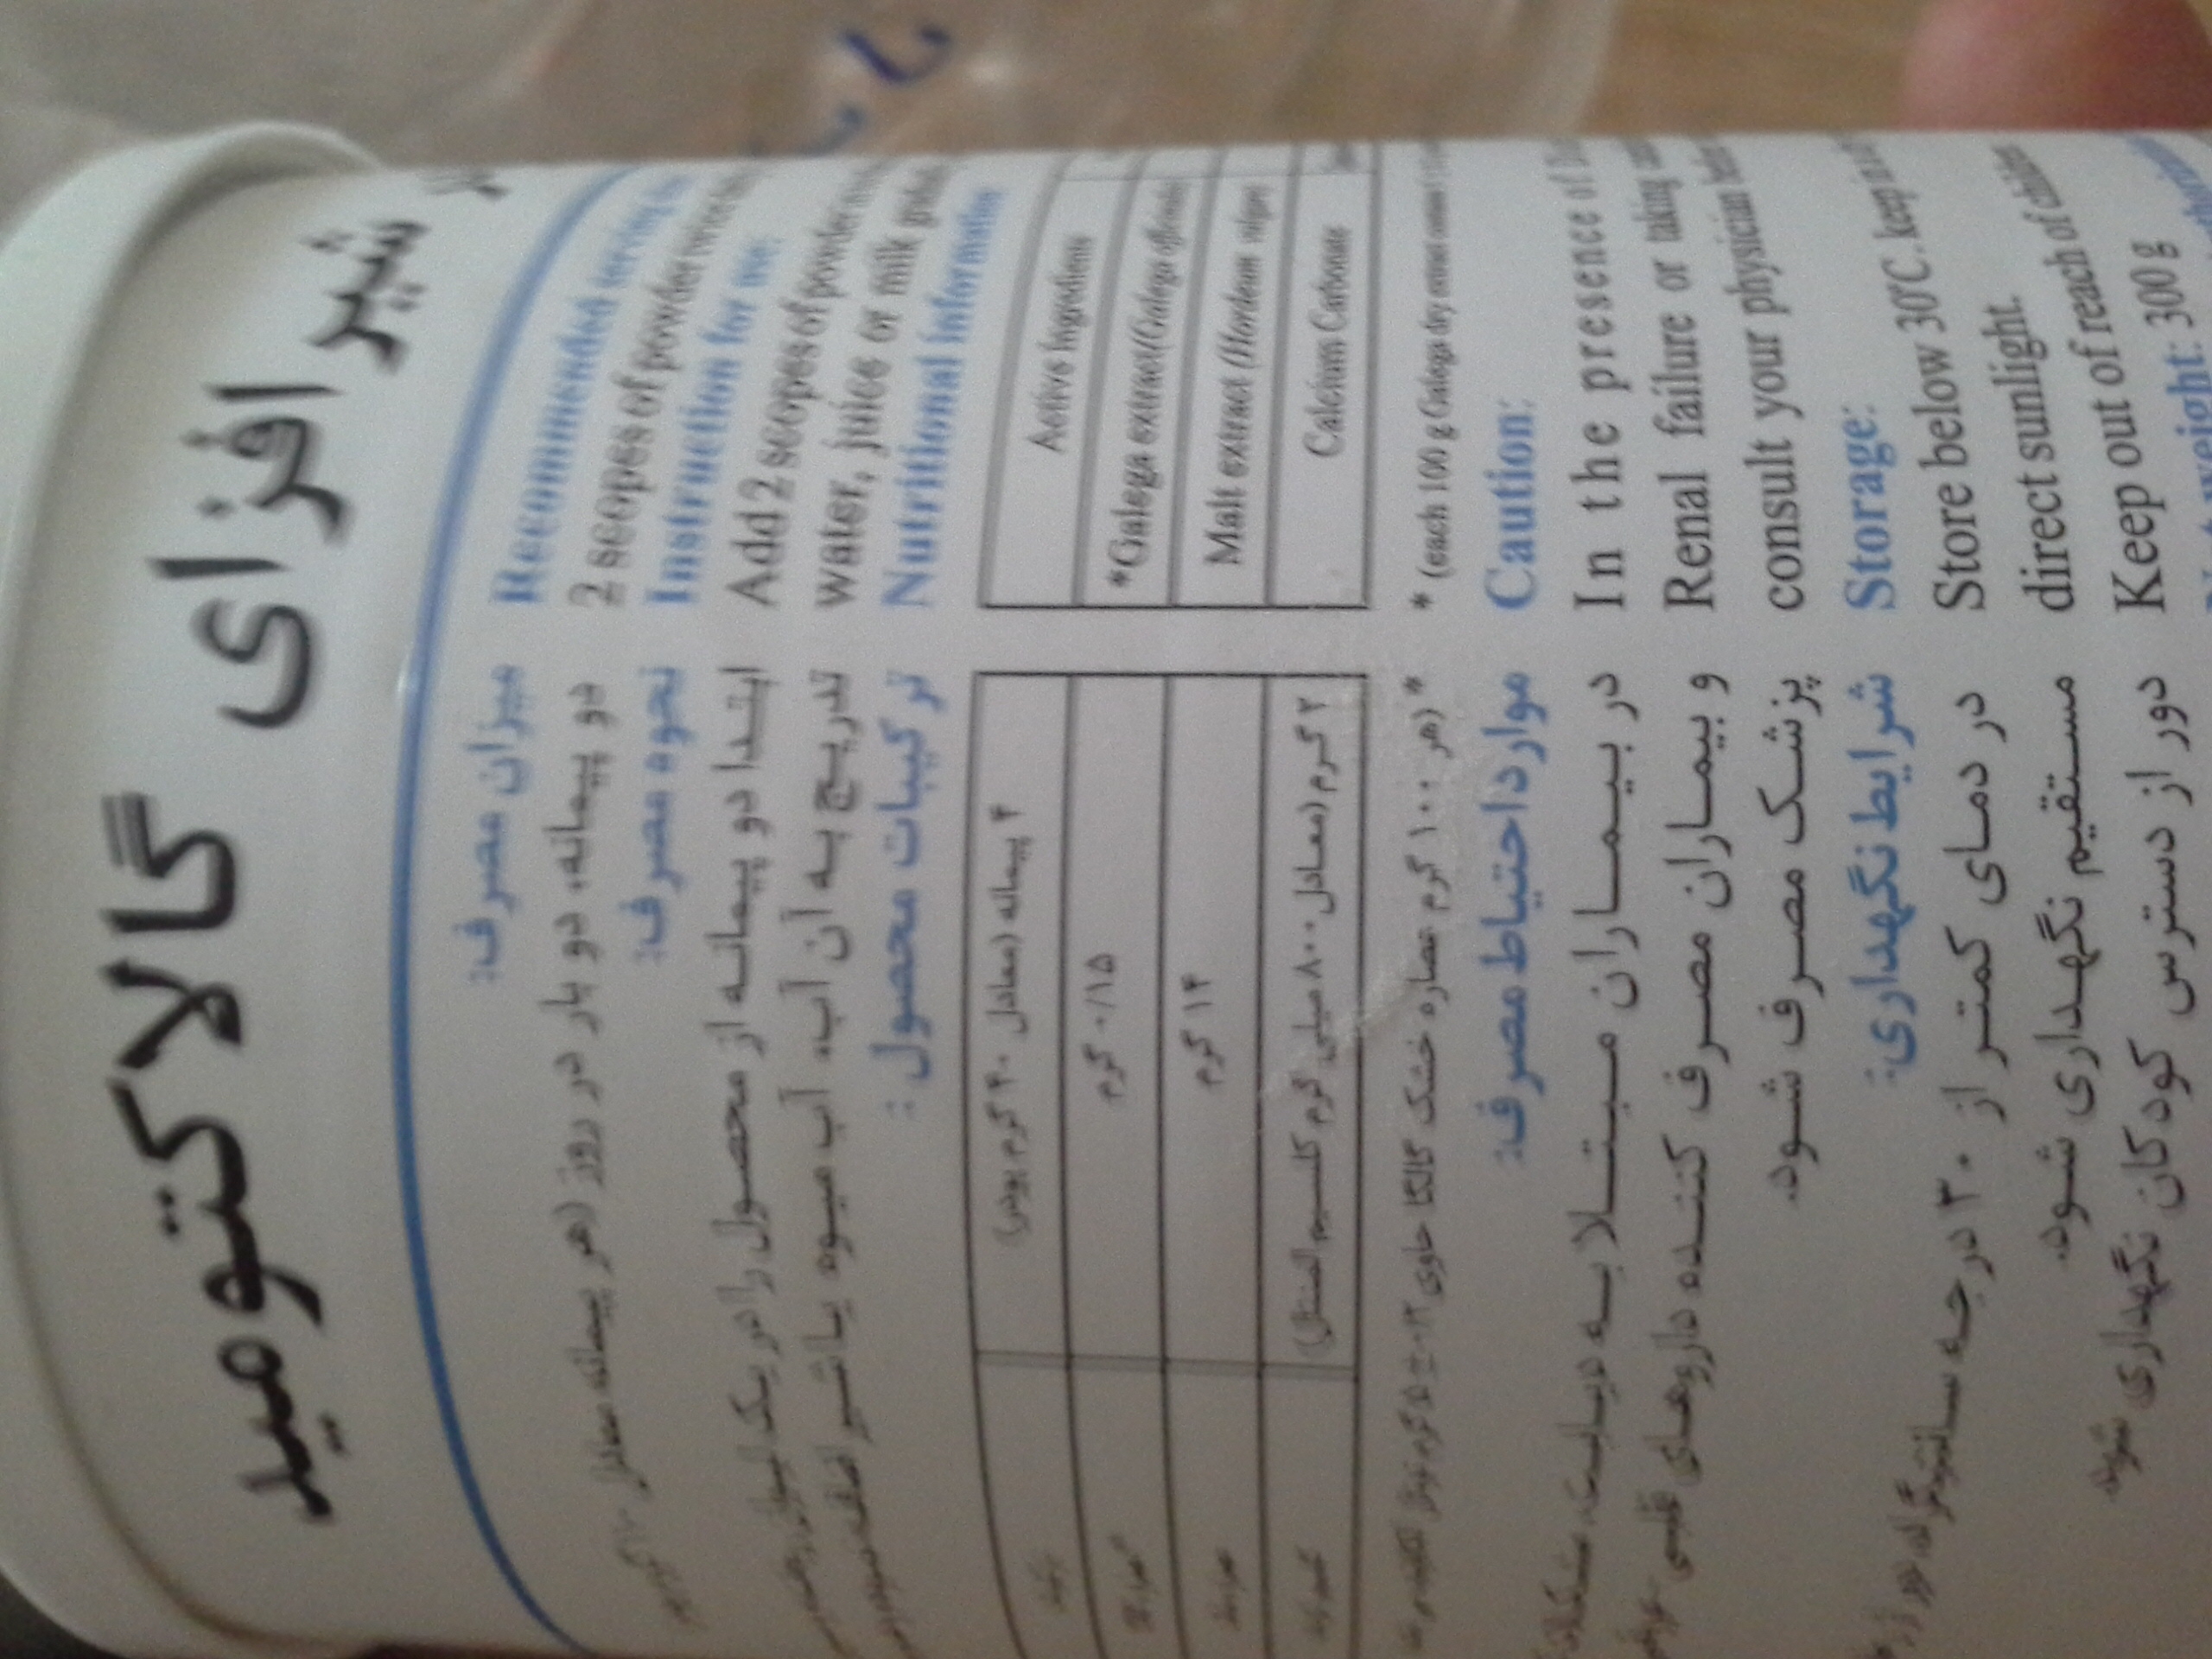 شیر افزای گالاکتومید
میزان مصرف:
دو پیمانه، دو بار در روز (هر پیمانه معادل ۱۰ گرم
نحوه مصرف:
ابتدا دو پیمانه از محصول را در یک لیوان
تدریج به آن آب، آب میوه یا شیر اضافه
ترکیبات محصول:
۴ پیمانه (معادل ۴۰ گرم پودر)
۰/۱۵ گرم
۱۴ گرم
۲ گرم (معادل ۸۰۰ میلی گرم کلسیم المنتال)
*(هر ۱۰۰ گرم عصاره خشک گالگا حاوی
موارد احتیاط مصرف:
در بیماران مبتلا به دیابت، مشکلات
و بیماران مصرف کننده داروهای قلبی
پزشک مصرف شود.
شرایط نگهداری:
در دمای کمتر از ۳۰ درجه سانتیگراد، دور از
مستقیم نگهداری شود.
دور از دسترس کودکان نگهداری شود.
Recommended serving
2 scopes of powder
Instruction for use:
Add 2 scopes of powder
water, juice or milk
Nutritional information
Active Ingredients
*Galega extract (Galega officinalis)
Malt extract (Hordeum vulgare)
Calcium Carbonate
* (each 100 g Galega dry extract
Caution:
In the presence of
Renal failure or taking
consult your physician
Storage:
Store below 30°C. keep
direct sunlight.
Keep out of reach of
weight: 300 g